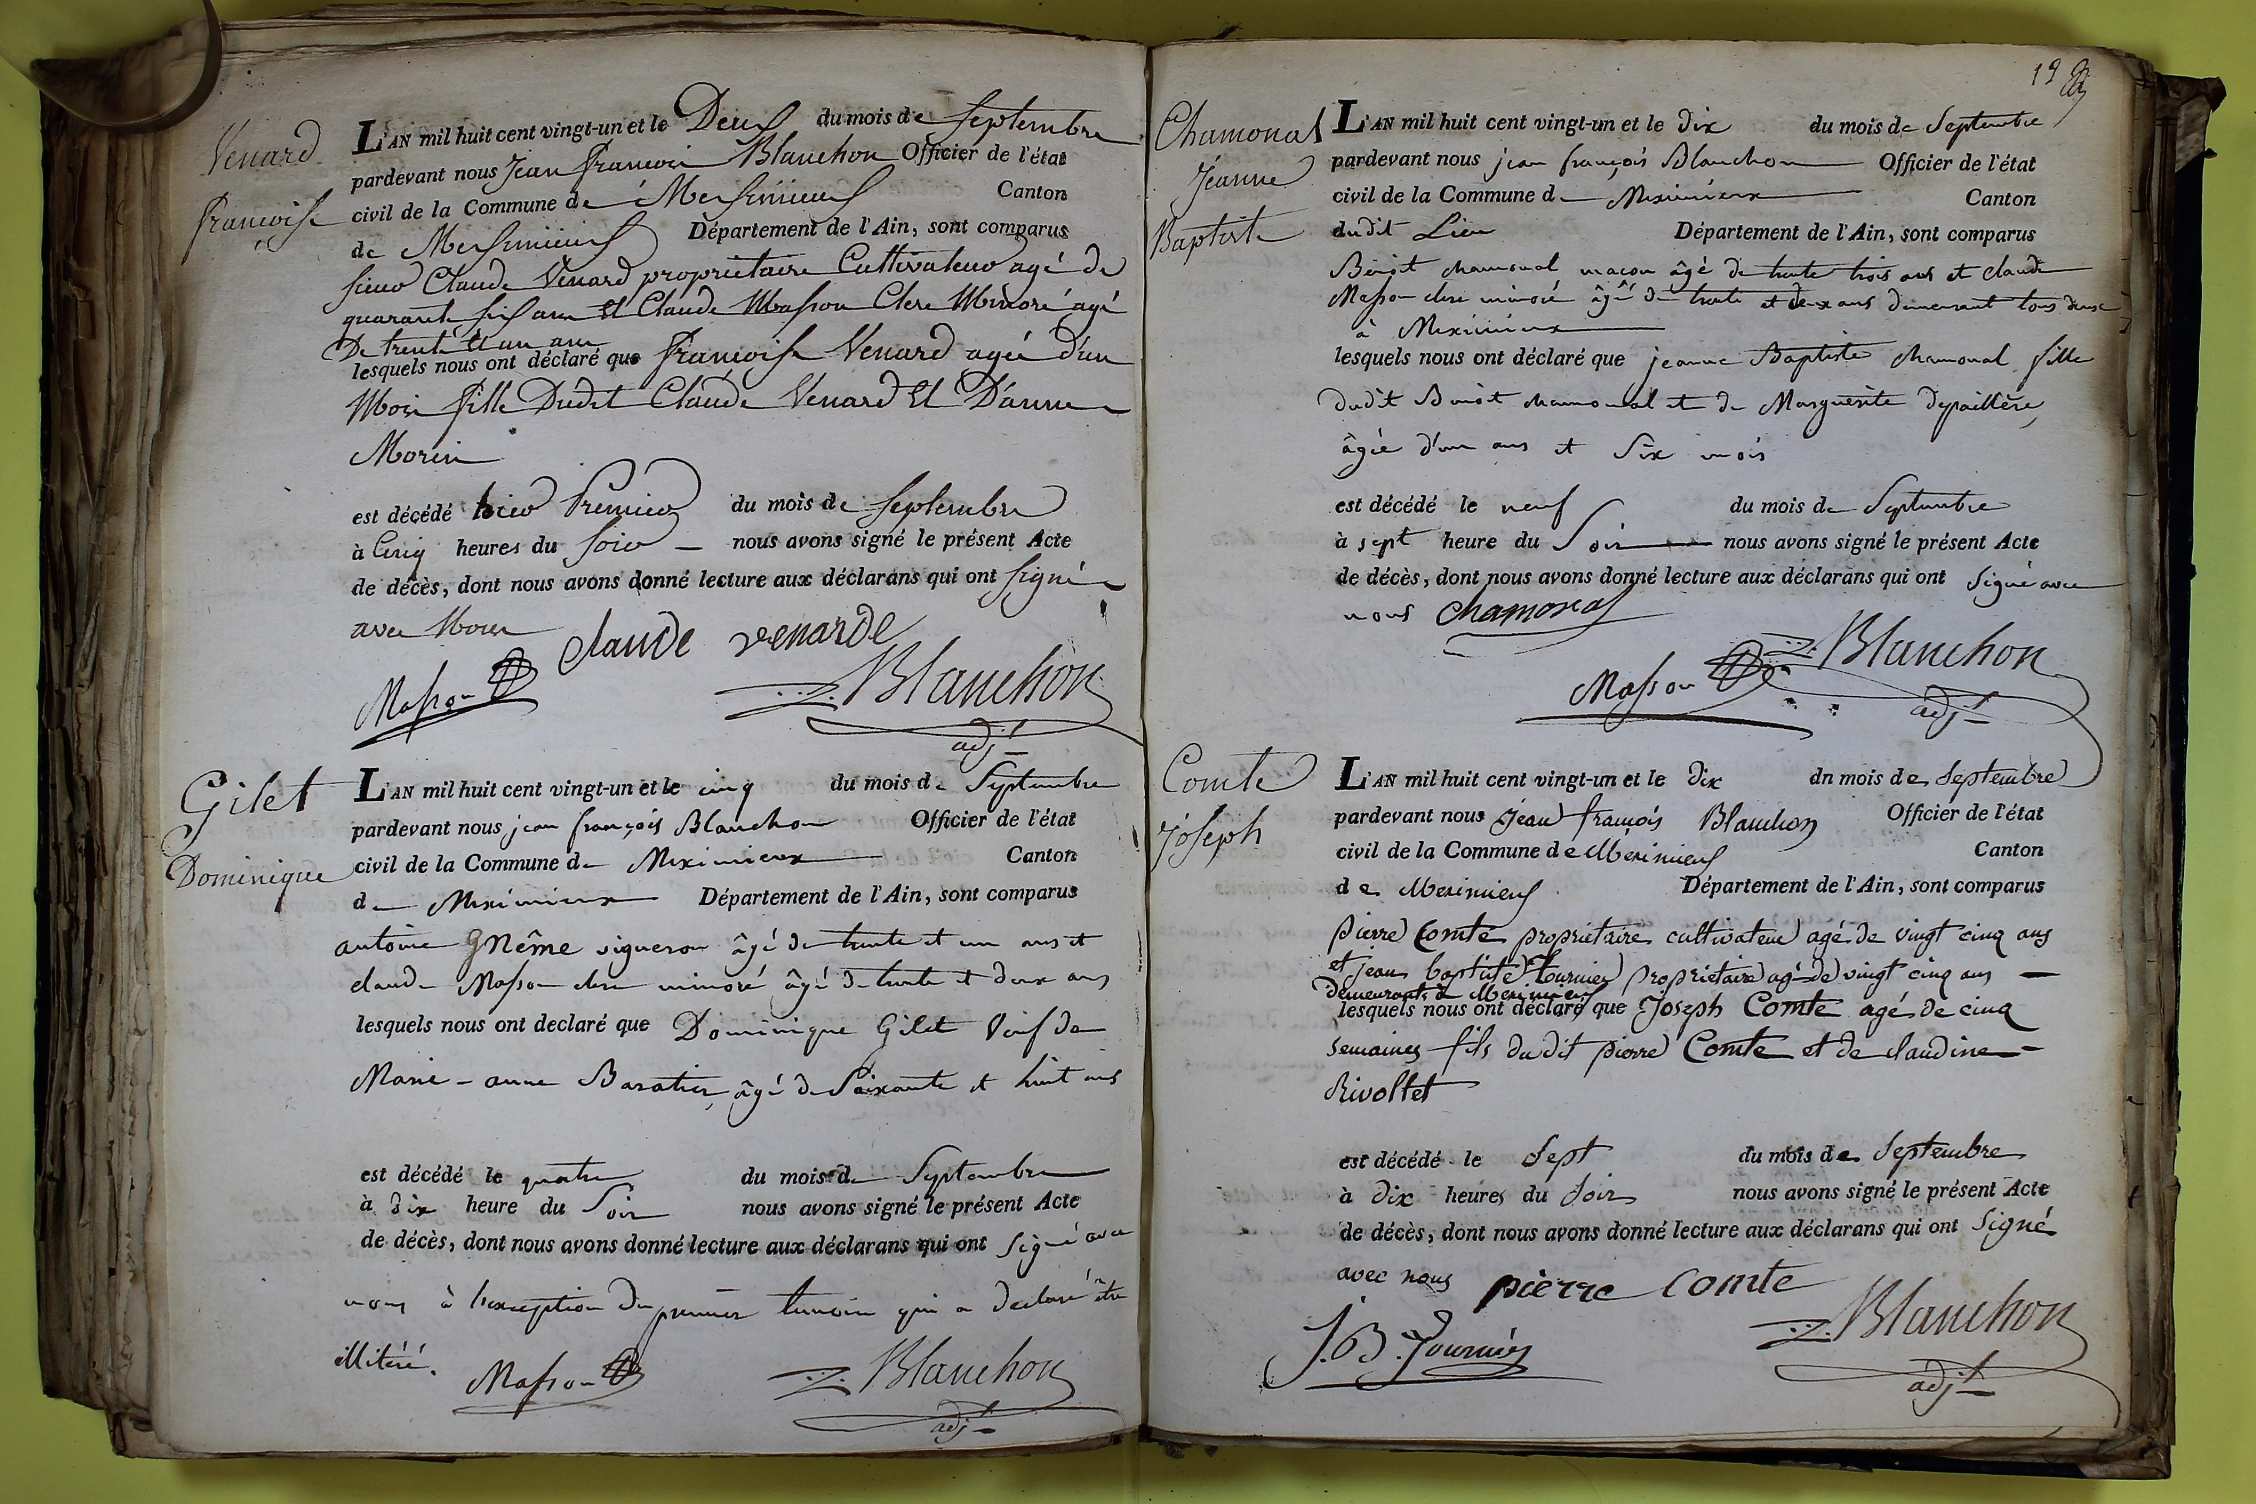 Venard
françoise
L'AN mil huit cent vingt-un et le Deux du mois de Septembre
pardevant nous Jean françois Blanchon Officier de l'état
civil de la Commune de Meximieux Canton
de Meximieux Département de l'Ain, sont comparus
sieur Claude Venard propriétaire Cultivateur agé de
quarante six ans Et Claude Masson Clerc Minoré agé
De trente Et un ans
lesquels nous ont déclaré que françoise Venard agée d'un
Mois fille Dudit Claude Venard Et D'anne
Morin
est décédé hier Premier du mois de Septembre
à Cinq heures du soir nous avons signé le présent Acte
de décès, dont nous avons donné lecture aux déclarans qui ont signé
avec Nous claude venarde
Masson Blanchon
adjt
Gilet
Dominique
L'AN mil huit cent vingt-un et le cinq du mois de Septembre
pardevant nous jean françois Blanchon Officier de l'état
civil de la Commune de Meximieux Canton
de Meximieux Département de l'Ain, sont comparus
antoine Gnême vigneron âgé de trente et un ans et
claude Masson clerc minoré âgé de trente et deux ans
lesquels nous ont declaré que Dominique Gilet Veuf de
Marie-anne Baratier, âgé de Soixante et huit ans
est décédé le quatre du mois de Septembre
à dix heure du Soir nous avons signé le présent Acte
de décès, dont nous avons donné lecture aux déclarans qui ont signé avec
nous à l'exception du premier temoin qui a declaré être
illitéré.
Masson Blanchon
adjt
12
Chamonal
Jeanne
Baptiste
L'AN mil huit cent vingt-un et le dix du mois de Septembre
pardevant nous jean françois Blanchon Officier de l'état
civil de la Commune de Meximieux Canton
dudit Lieu Département de l'Ain, sont comparus
Benoit chamonal maçon âgé de trente trois ans et claude
Masson clerc minoré âgé de trente et deux ans demeurant tous deux
à Meximieux
lesquels nous ont déclaré que jeanne Baptiste chamonal fille
dudit Benoit chamonal et de Marguerite depaillère,
âgée d'un ans et six mois
est décédé le neuf du mois de Septembre
à sept heure du Soir nous avons signé le présent Acte
de décès, dont nous avons donné lecture aux déclarans qui ont signé avec
nous chamonal
Masson Blanchon
adjt
Comte
Joseph
L'AN mil huit cent vingt-un et le dix dn mois de Septembre
pardevant nous Jean françois Blanchon Officier de l'état
civil de la Commune de Meximieux Canton
de Meximieux Département de l'Ain, sont comparus
pierre Comte propriétaire cultivateur agé de vingt cinq ans
et jean baptiste Tournier propriétaire agé de vingt cinq ans
demeurants à Meximieux
lesquels nous ont déclaré que Joseph Comte agé de cinq
semaines fils du dit pierre Comte et de claudine
Rivollet
est décédé le Sept du mois de Septembre
à dix heures du soir nous avons signé le présent Acte
de décès, dont nous avons donné lecture aux déclarans qui ont signé
avec nous pierre comte
J.B. Tournier Blanchon
adjt